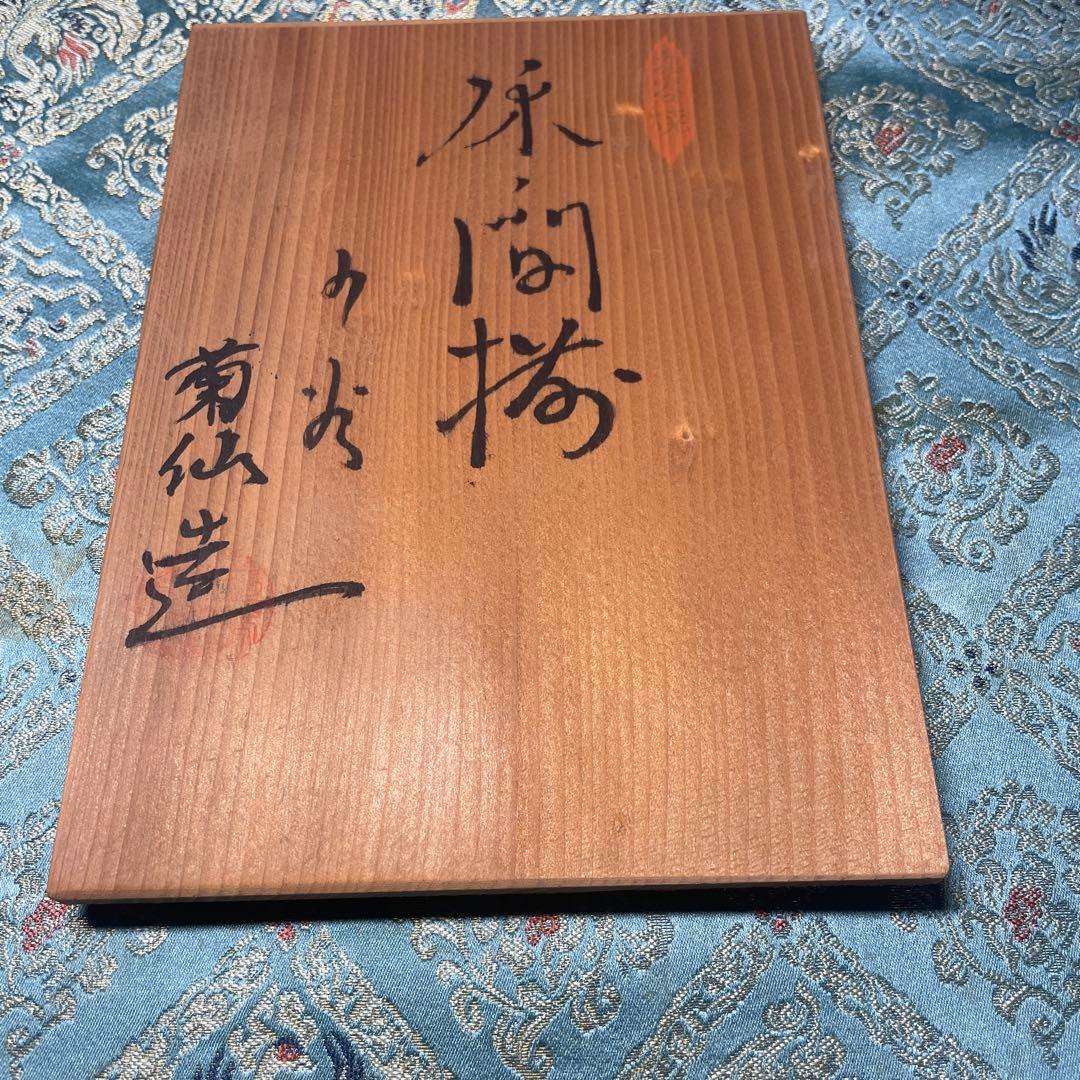 床間揃
九谷
菊仙造